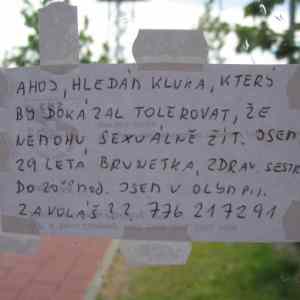 AHOJ, HLEDÁM KLUKA, KTERÝ
BY DOKÁZAL TOLEROVAT, ŽE
NEMOHU SEXUÁLNĚ ŽÍT. JSEM
29 LETÁ BRUNETKA, ZDRAV. SESTR
DO 20 HOD. JSEM V OLYMPII.
ZAVOLÁŠ 776 217291